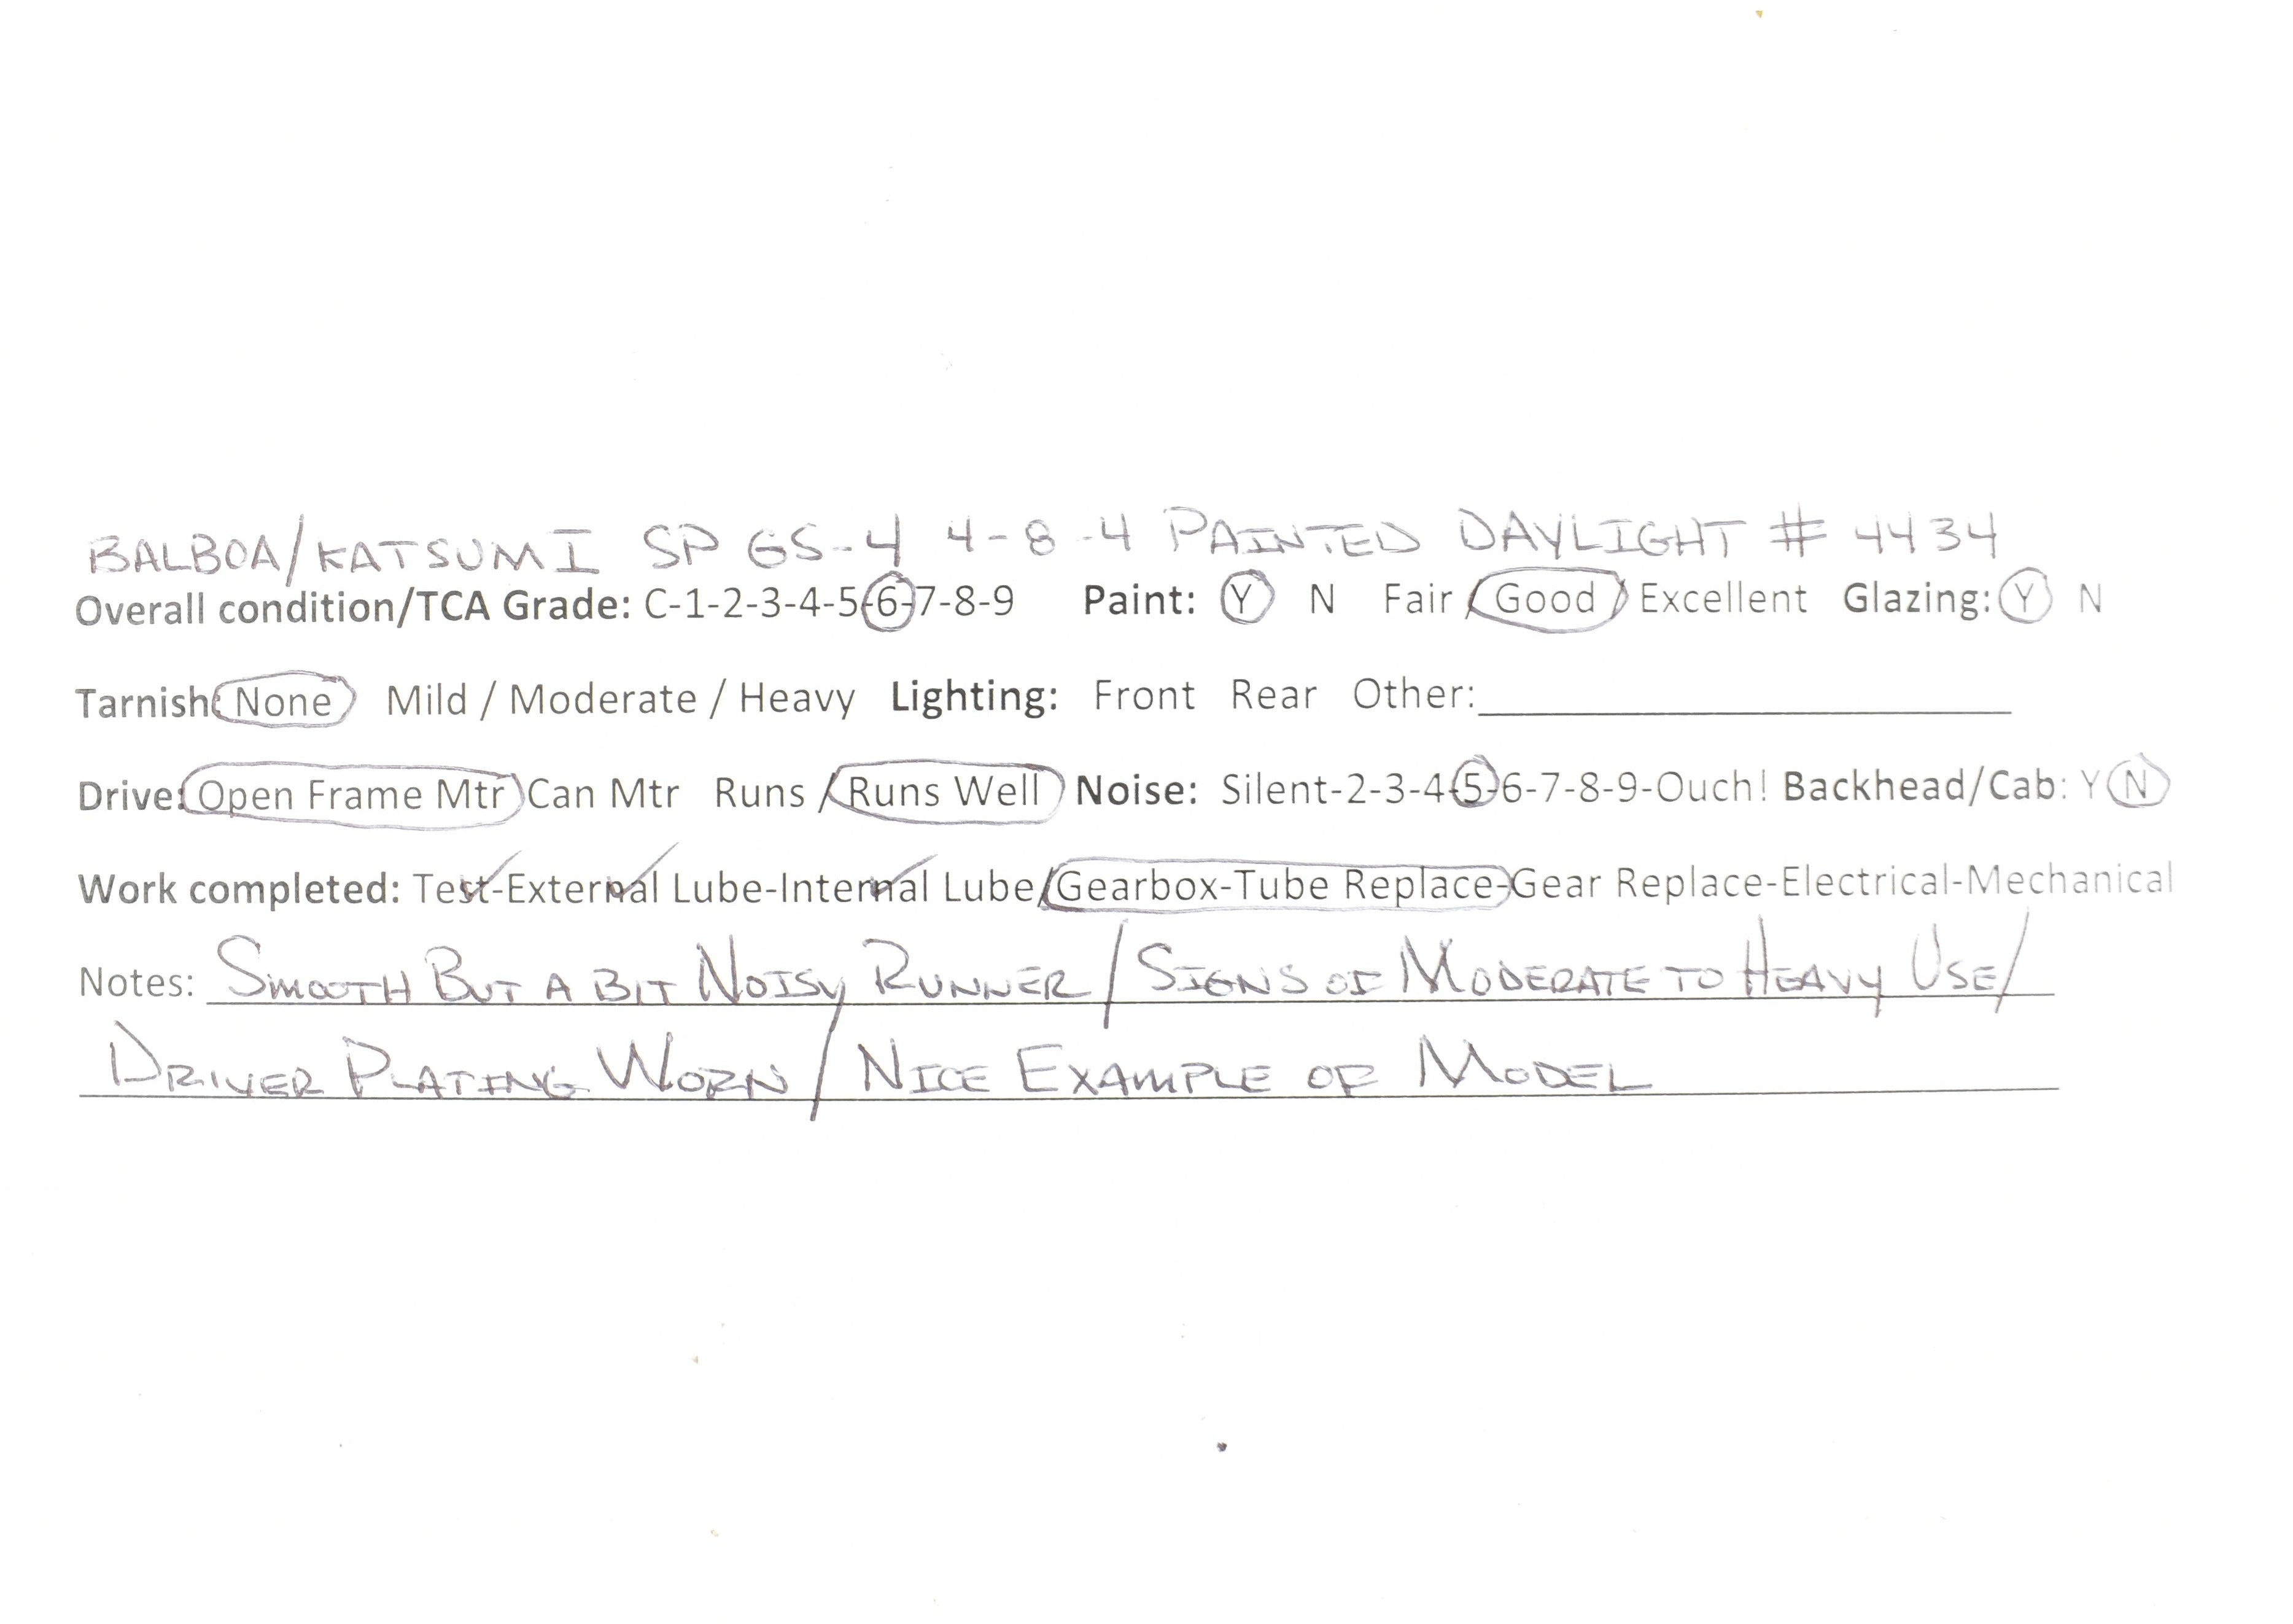 BALBOA/KATSUMI SP GS-4 4-8-4 PAINTED DAYLIGHT # 4434
Overall condition/TCA Grade: C-1-2-3-4-5-6-7-8-9 Paint: Y N Fair / Good / Excellent Glazing: Y N
Tarnish: None Mild / Moderate / Heavy Lighting: Front Rear Other:
Drive: Open Frame Mtr Can Mtr Runs / Runs Well Noise: Silent-2-3-4-5-6-7-8-9-Ouch! Backhead/Cab: Y N
Work completed: Test-External Lube-Internal Lube/Gearbox-Tube Replace-Gear Replace-Electrical-Mechanical
Notes: SMOOTH BUT A BIT NOISY RUNNER / SIGNS OF MODERATE TO HEAVY USE/
DRIVER PLATING WORN / NICE EXAMPLE OF MODEL